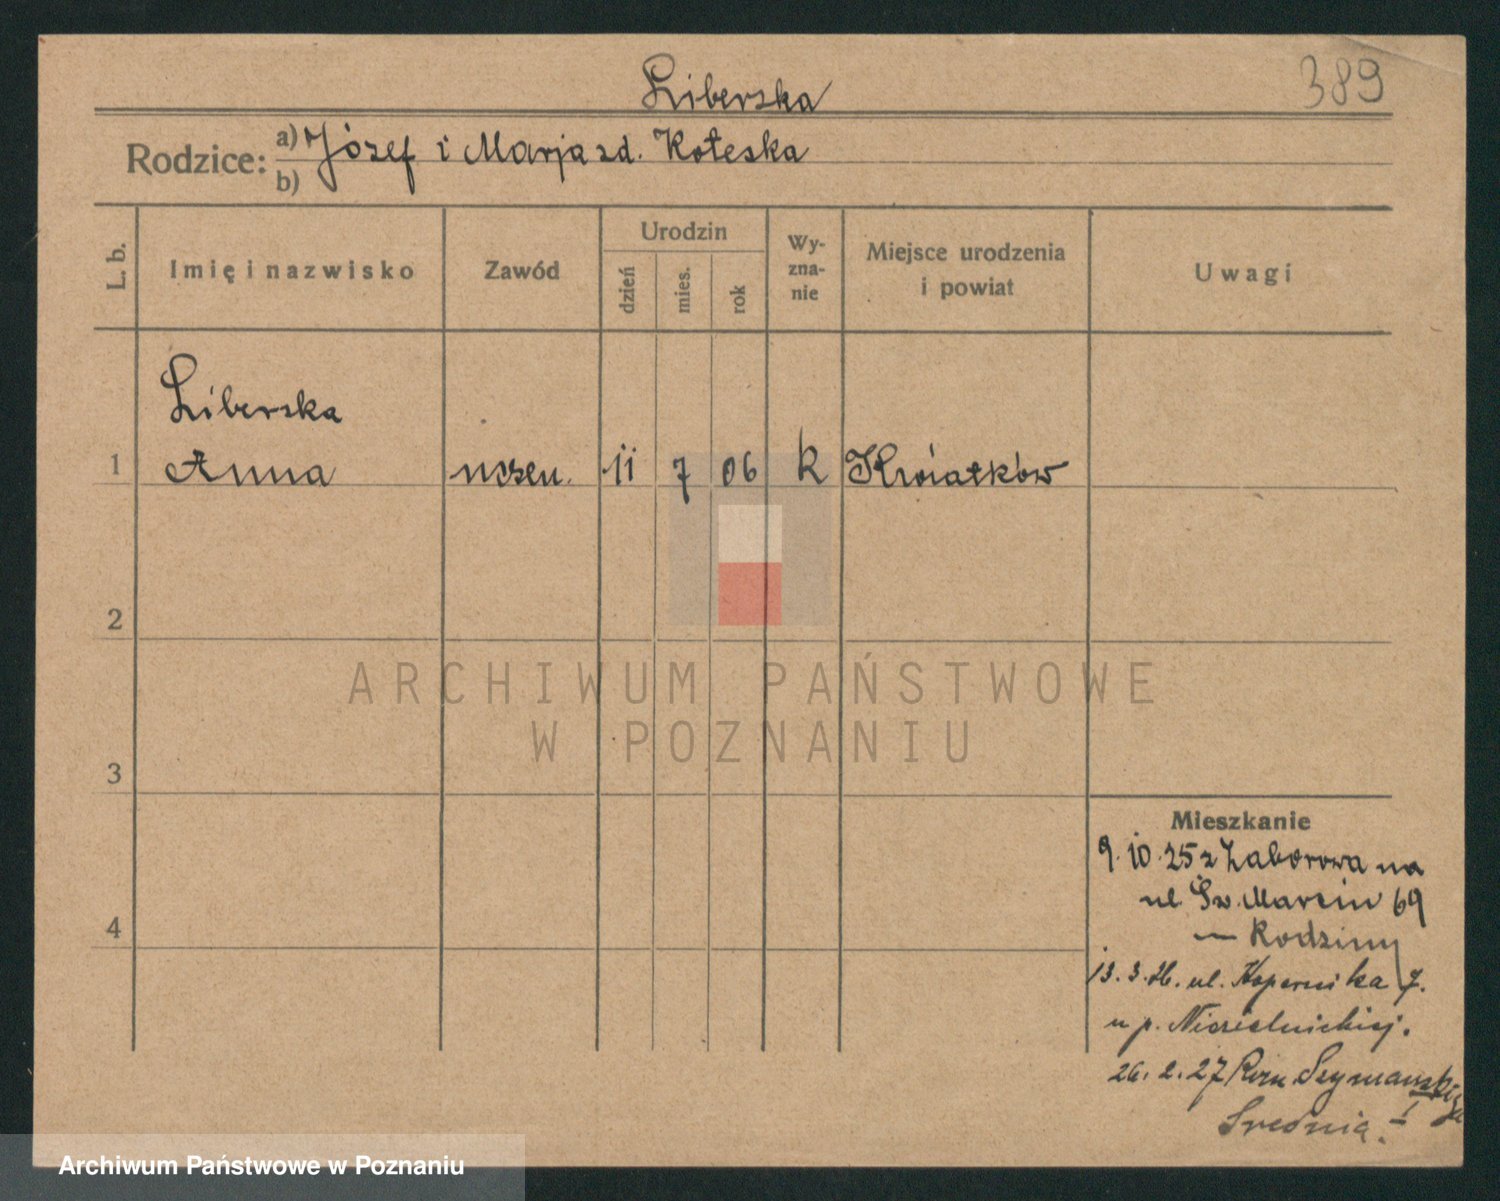 Liberska
389
Rodzice: a) Józef i Marja zd. Koteska
b)
L. b.
Imię i nazwisko
Zawód
Urodzin
dzień
mies.
rok
Wy-
zna-
nie
Miejsce urodzenia
i powiat
Uwagi
Liberska
1 Anna uczen. 11 7 06 k Kwiatków
2
3
4
Mieszkanie
9.10.25 z Zaborowa na
ul. Św. Marcin 69
— Rodziny
13.3.26. ul. Kopernika 7.
u p.
26.2.27 Szymańskiego
Średnia.
ARCHIWUM PAŃSTWOWE
W POZNANIU
Archiwum Państwowe w Poznaniu